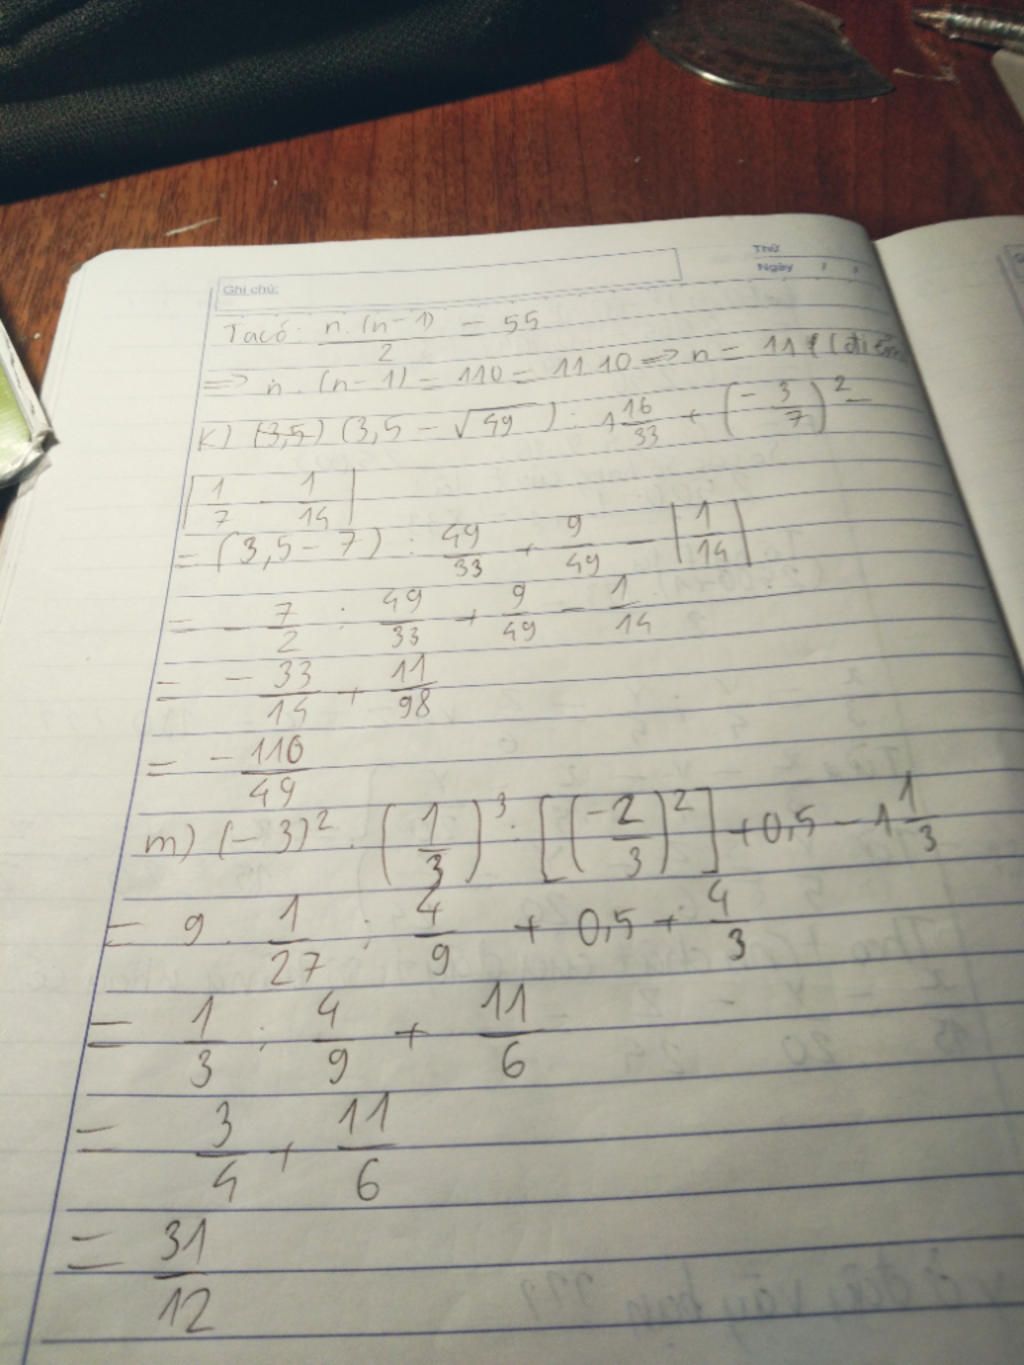 Thứ
Ngày
Ghi chú:
Ta có: n.(n-1)/2 = 55
=> n.(n-1) = 110 = 11.10 => n = 11 (điểm
k) (3,5) (3,5 - √49) : 1 16/33 + (-3/7)² -
|1/7 - 1/14|
= (3,5 - 7) : 49/33 + 9/49 - |1/14|
= - 7/2 : 49/33 + 9/49 - 1/14
= - 33/14 + 11/98
= - 110/49
m) (-3)² . (1/3)³ : [(-2/3)²] + 0,5 - 1 1/3
= 9 . 1/27 : 4/9 + 0,5 + 4/3
= 1/3 : 4/9 + 11/6
= 3/4 + 11/6
= 31/12